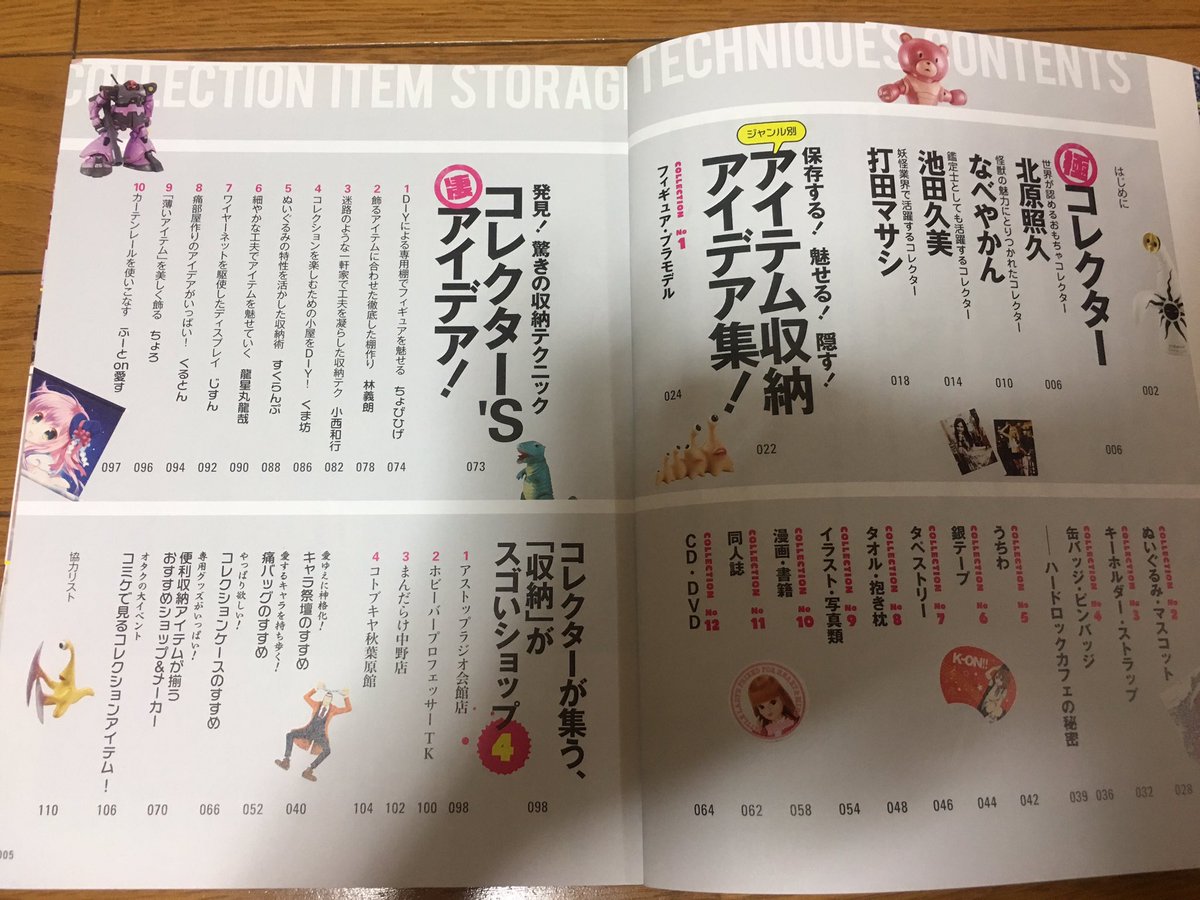 COLLECTION ITEM STORAGE TECHNIQUES CONTENTS
はじめに
002
極 コレクター
006
世界が認めるおもちゃコレクター
北原照久
006
怪獣の魅力にとりつかれたコレクター
なべやかん
010
鑑定士としても活躍するコレクター
池田久美
014
妖怪業界で活躍するコレクター
打田マサシ
018
保存する! 魅せる! 隠す!
ジャンル別
アイテム収納
アイデア集!
022
COLLECTION No 1
フィギュア・プラモデル
024
COLLECTION No 2
ぬいぐるみ・マスコット
028
COLLECTION No 3
キーホルダー・ストラップ
032
COLLECTION No 4
缶バッジ・ピンバッジ
036
――ハードロックカフェの秘密
039
COLLECTION No 5
うちわ
042
COLLECTION No 6
銀テープ
044
COLLECTION No 7
タペストリー
046
COLLECTION No 8
タオル・抱き枕
048
COLLECTION No 9
イラスト・写真類
054
COLLECTION No 10
漫画・書籍
058
COLLECTION No 11
同人誌
062
COLLECTION No 12
CD・DVD
064
K-ON!!
発見! 驚きの収納テクニック
コレクター'S
凄 アイデア!
073
1 DIYによる専用棚でフィギュアを魅せる ちょぴひげ
074
2 飾るアイテムに合わせた徹底した棚作り 林義朗
078
3 迷路のような一軒家で工夫を凝らした収納テク 小西和行
082
4 コレクションを楽しむための小屋をDIY! くま坊
086
5 ぬいぐるみの特性を活かした収納術 すくらんぶ
088
6 細やかな工夫でアイテムを魅せていく 龍星丸龍哉
090
7 ワイヤーネットを駆使したディスプレイ じすん
092
8 痛部屋作りのアイデアがいっぱい! くるとん
094
9 「薄いアイテム」を美しく飾る ちょろ
096
10 カーテンレールを使いこなす ぷーとon愛す
097
コレクターが集う、
「収納」が
スゴいショップ4
098
1 アストップラジオ会館店
098
2 ホビーバープロフェッサーTK
100
3 まんだらけ中野店
102
4 コトブキヤ秋葉原館
104
愛ゆえに神格化!
キャラ祭壇のすすめ
040
愛するキャラを持ち歩く!
痛バッグのすすめ
052
やっぱり欲しい!
コレクションケースのすすめ
066
専用グッズがいっぱい!
便利収納アイテムが揃う
おすすめショップ&メーカー
070
オタクの大イベント
コミケで見るコレクションアイテム!
106
協力リスト
110
005